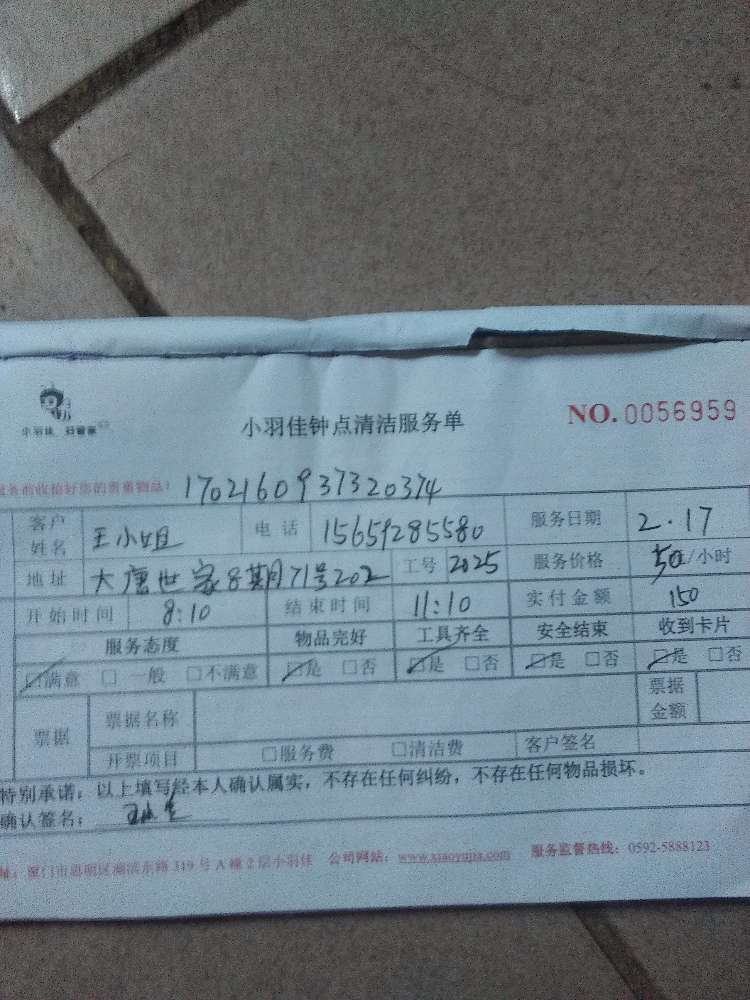 小羽佳 好管家
小羽佳钟点清洁服务单
NO.0056959
服务前收拾好您的贵重物品!
1702160937320374
客户姓名 王小姐 电话 15659285580 服务日期 2.17
地址 大唐世家8期71号202 工号 2025 服务价格 50/小时
开始时间 8:10 结束时间 11:10 实付金额 150
服务态度 物品完好 工具齐全 安全结束 收到卡片
☑满意 □ 一般 □不满意 ☑是 □否 ☑是 □否 ☑是 □否 ☑是 □否
票据 票据名称 票据金额
开票项目 □服务费 □清洁费 客户签名
特别承诺:以上填写经本人确认属实,不存在任何纠纷,不存在任何物品损坏。
确认签名:
址:厦门市思明区湖滨东路319号A幢2层小羽佳 公司网站:www.xiaoyujia.com 服务监督热线:0592-5888123